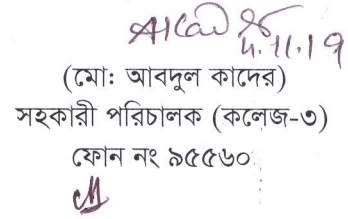 ৭.11.19
(মো: আবদুল কাদের)
সহকারী পরিচালক (কলেজ-৩)
ফোন নং ৯৫৫৬০